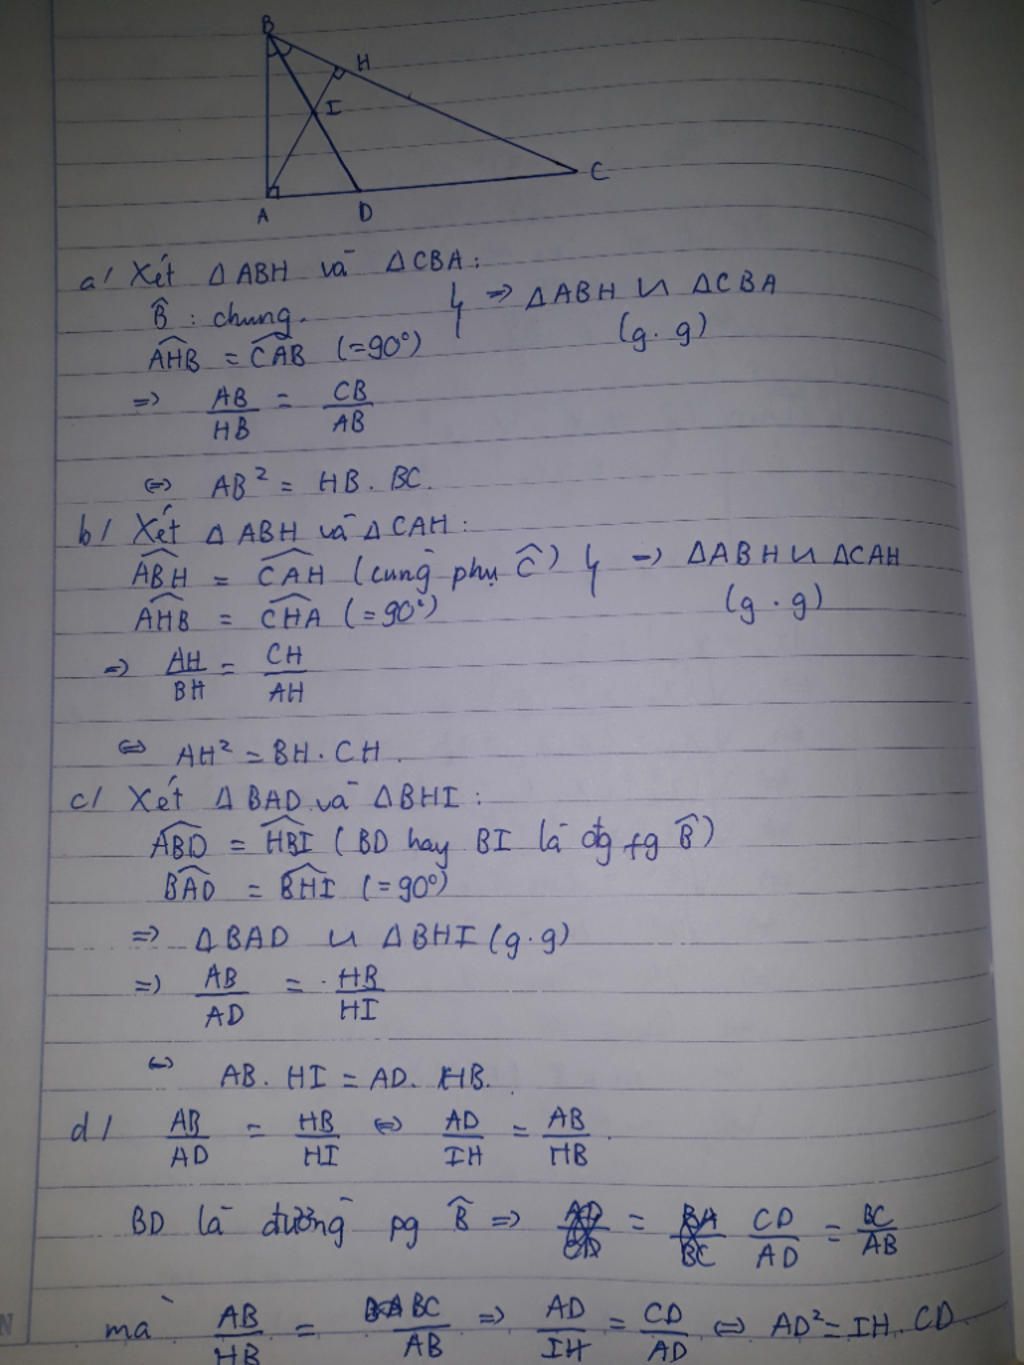 B
H
I
C
A
D
a/ Xét Δ ABH và ΔCBA:
B̂ : chung. } => ΔABH ∽ ΔCBA
AHB = CAB (=90°) (g.g)
=> AB/HB = CB/AB
<=> AB² = HB. BC.
b/ Xét Δ ABH và ΔCAH:
ABH = CAH (cùng phụ Ĉ) } => ΔABH ∽ ΔCAH
AHB = CHA (=90°) (g.g)
=> AH/BH = CH/AH
<=> AH² = BH. CH.
c/ Xét Δ BAD và ΔBHI:
ABD = HBI (BD hay BI là đg fg B̂)
BAD = BHI (=90°)
=> ΔBAD ∽ ΔBHI (g.g)
=> AB/AD = HB/HI
<=> AB. HI = AD. HB.
d/ AB/AD = HB/HI <=> AD/IH = AB/HB.
BD là đường pg B̂ => CD/AD = BC/AB
mà AB/HB = BC/AB => AD/IH = CD/AD <=> AD² = IH. CD